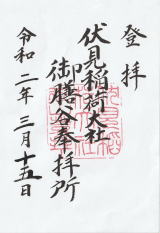 登拝
伏見稲荷大社
御膳谷奉拝所
令和二年三月十五日